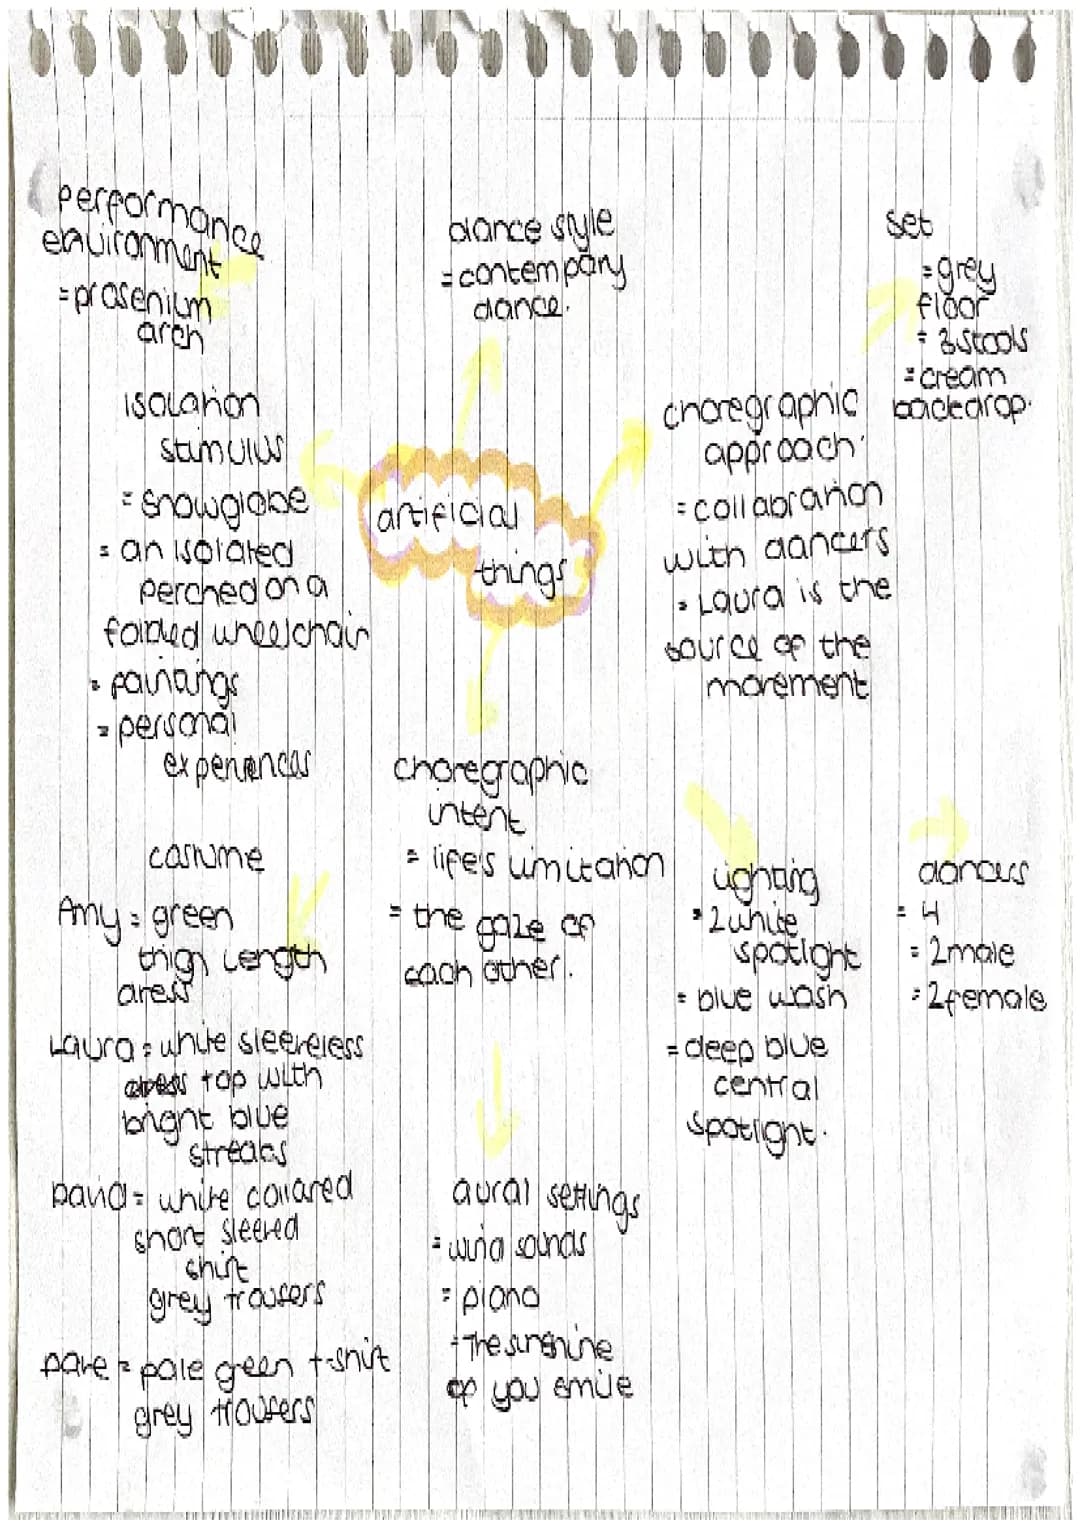 performance
environment
= prosenium
arch
dance style
= contempary
dance.
set
= grey
floor
= 3 stools
= cream
backdrop.
isolation
stimulus
= snowglobe
= an isolated
perched on a
folded wheelchair
= paintings
= personal
experiences
artificial
things
choregraphic
approach
= collabration
with dancers
= Laura is the
source of the
movement
choregraphic
intent
= life's limitation
= the gaze of
each other.
costume
Amy = green
thigh length
dress
Laura = white sleeveless
dress top with
bright blue
streaks
David = white collared
short sleeved
shirt
grey trousers
Dave = pale green t-shirt
grey trousers
lighting
= 2 white
spotlight
= blue wash
= deep blue
central
spotlight.
dancers
= 4
= 2 male
= 2 female
aural settings
= wind sounds
= piano
= The sunshine
of you smile